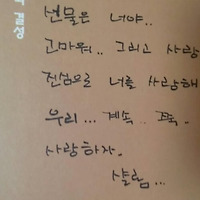 선물은 너야..
고마워.. 그리고 사랑
진심으로 너를 사랑해
우리... 계속.. 쪼옥.
사랑하자.
결성